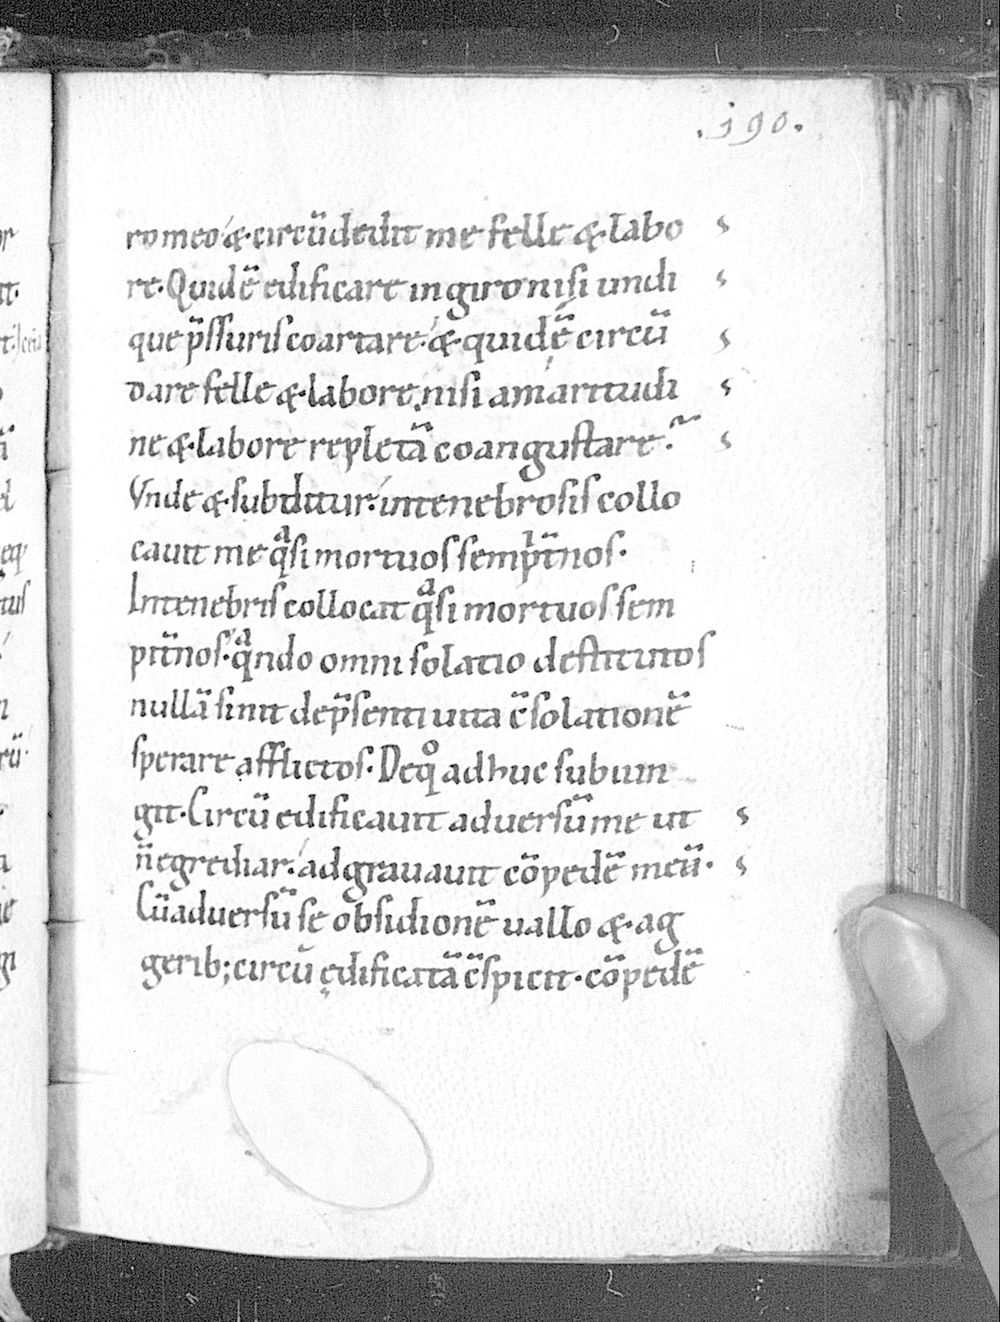 .190.
ro meo &. circũdedit me felle &. labo
re. Quidẽ edificare in giro nisi undi
que p̃ssuris coartare. &. quidẽ circũ
dare felle &. labore, nisi amaritudi
ne &. labore repletã coangustare?
Vnde &. subditur. in tenebrosis collo
cauit me qͣsi mortuos sempit̃nos.
In tenebris collocat qͣsi mortuos sem
pit̃nos. qͣndo omni solatio destitutos
nullã sinit de p̃senti uita c̃solationẽ
sperare afflictos. De qͦ adhuc subiun
git. Circũ edificauit aduersũ me ut
ñ egrediar. adgrauauit cõpedẽ meũ.
Cũ aduersũ se obsidionẽ uallo &. ag
gerib; circũ ędificatã c̃spicit. cõpedẽ